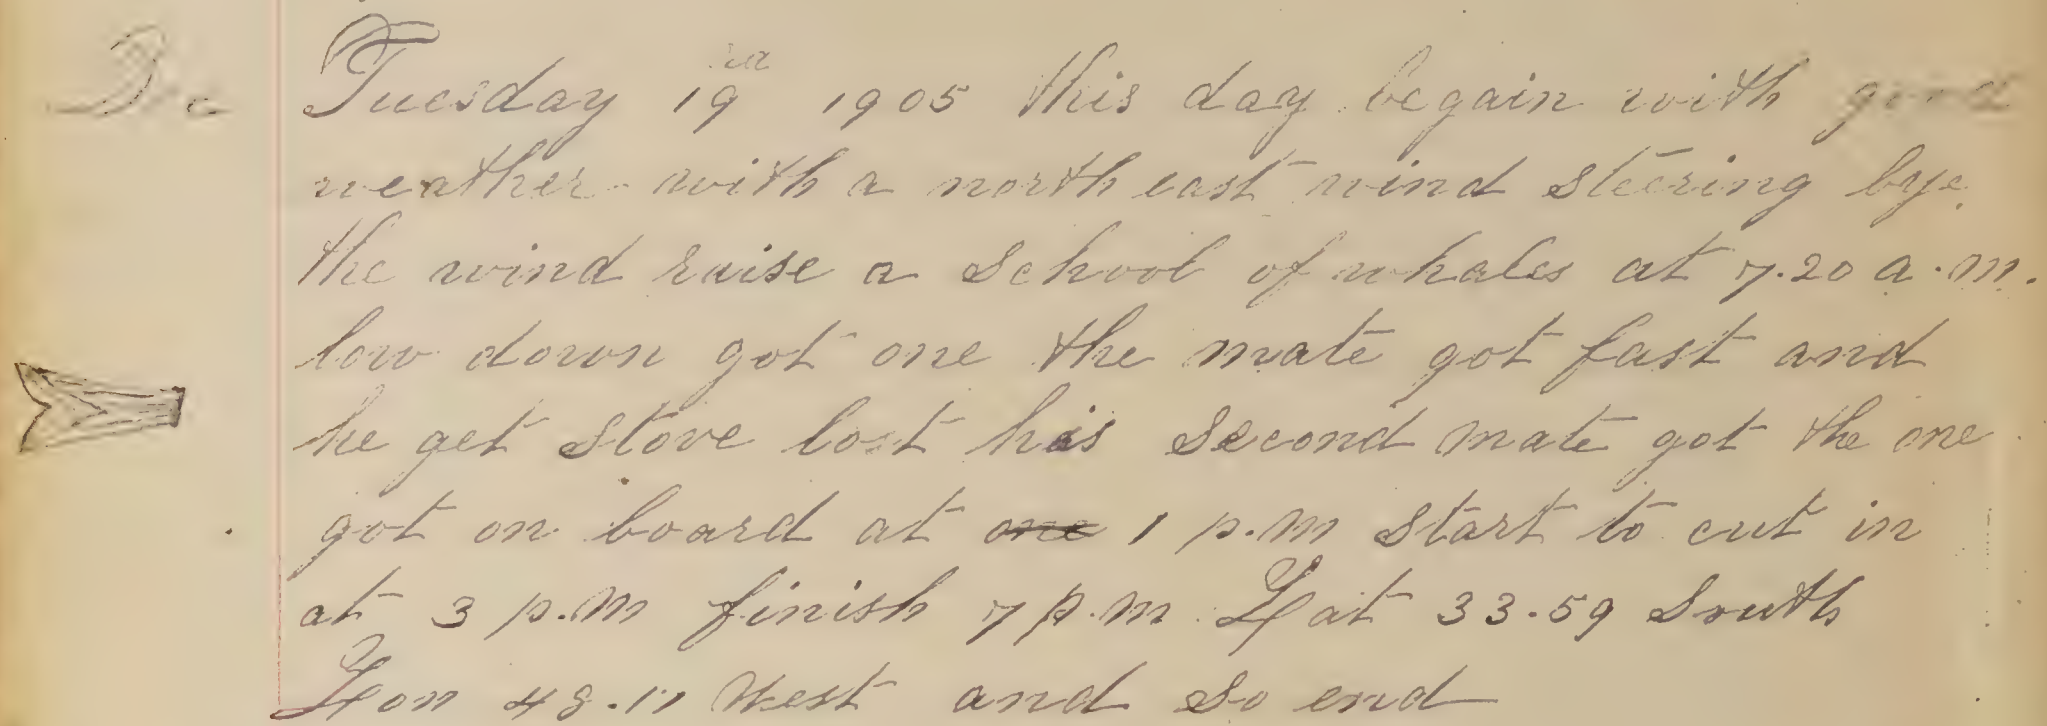 Dec Tuesday 19 1905 this day begain with good
weather with a north east wind steering bye
the wind raise a school of whales at 7.20 a.m.
low down got one the mate got fast and
he get stove lost his second mate got the one
got on board at one 1 p.m start to cut in
at 3 p.m finish 7 p.m. Lat 33.59 South
Lon 48.11 West and so end